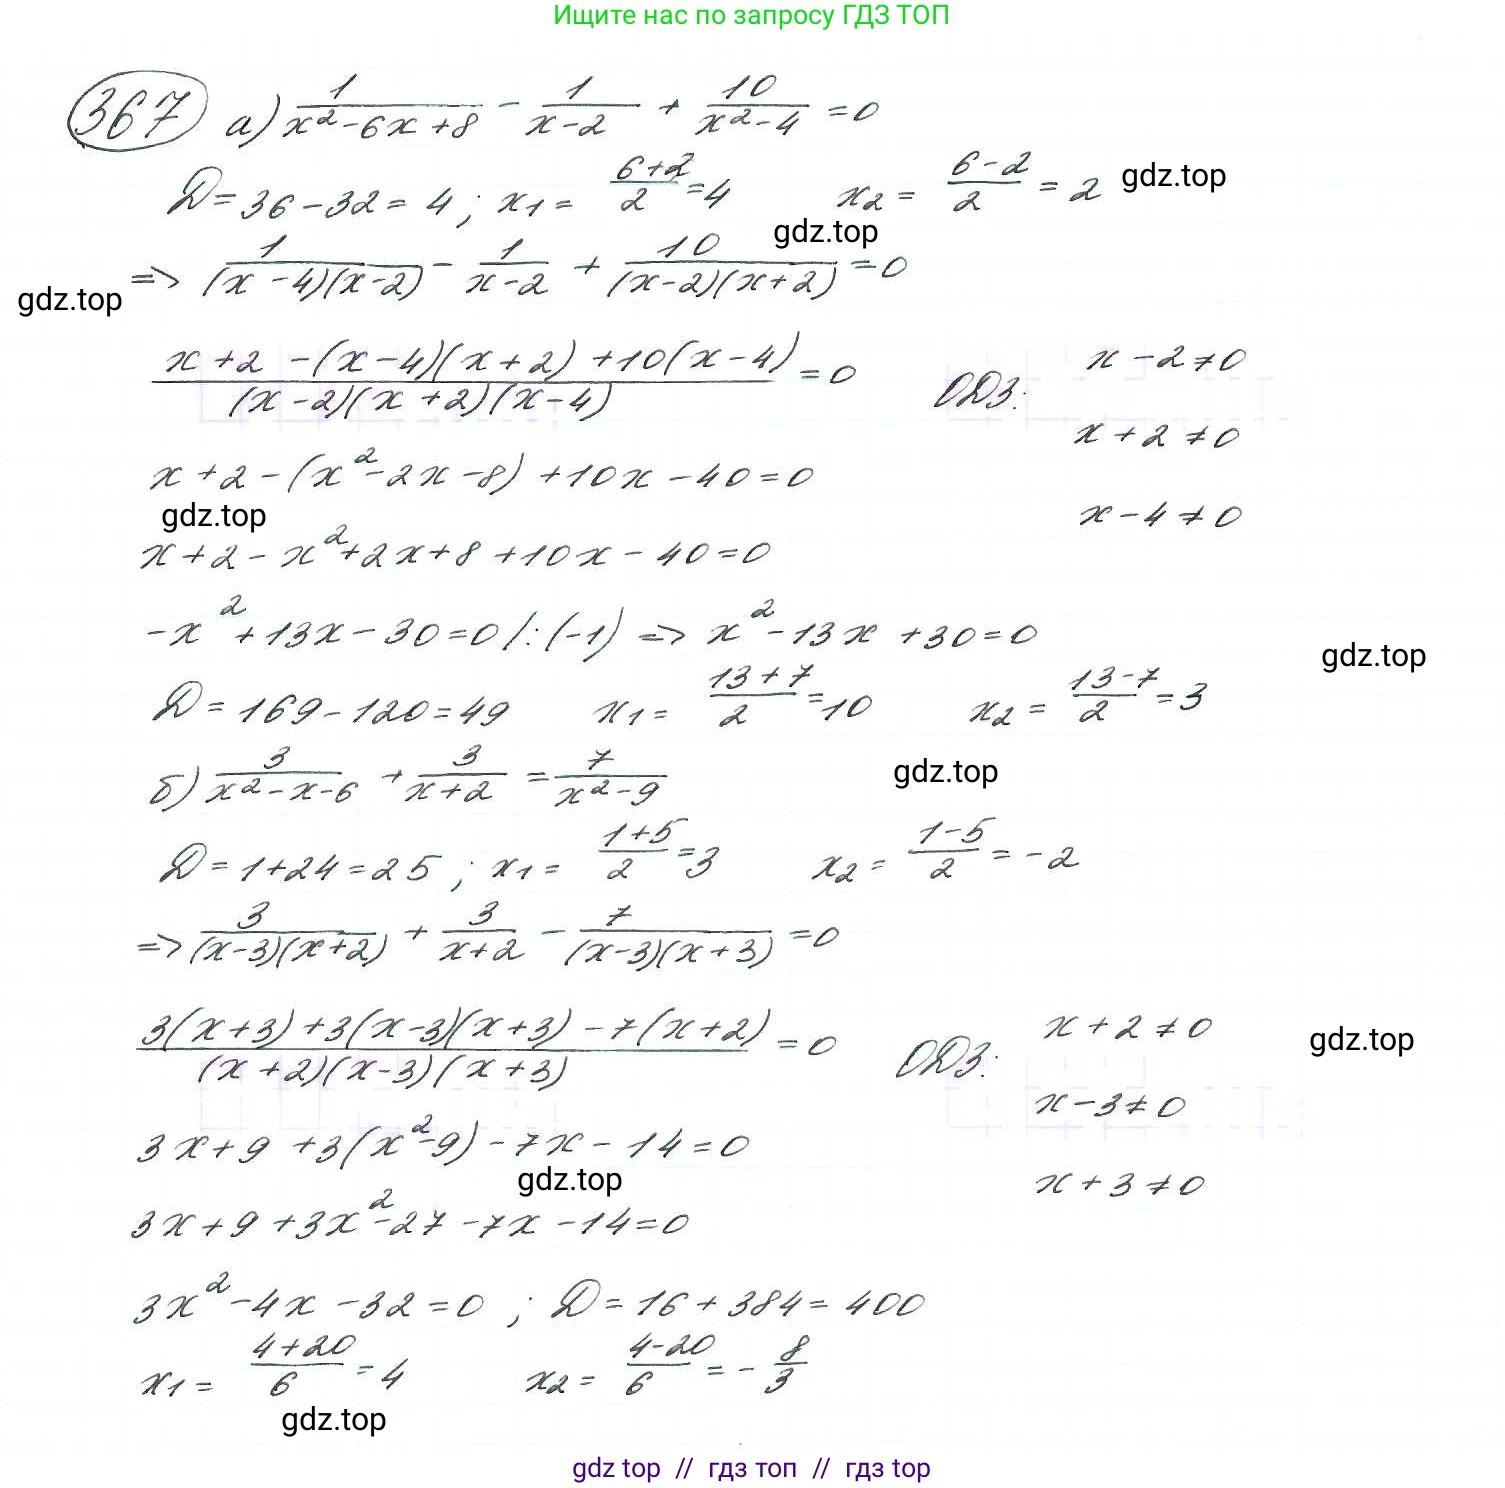 Ищите нас по запросу ГДЗ ТОП
367 а) 1/(x²-6x+8) - 1/(x-2) + 10/(x²-4) = 0
D = 36-32 = 4; x1 = (6+2)/2 = 4 x2 = (6-2)/2 = 2 gdz.top
gdz.top
=> 1/((x-4)(x-2)) - 1/(x-2) + 10/((x-2)(x+2)) = 0
gdz.top
(x+2 -(x-4)(x+2) +10(x-4))/((x-2)(x+2)(x-4)) = 0 ОДЗ: x-2≠0
x+2≠0
x+2-(x²-2x-8)+10x-40=0
gdz.top x-4≠0
x+2-x²+2x+8+10x-40=0
-x²+13x-30=0 /:(-1) => x²-13x+30=0
gdz.top
D = 169-120=49 x1 = (13+7)/2 = 10 x2 = (13-7)/2 = 3
б) 3/(x²-x-6) + 3/(x+2) = 7/(x²-9) gdz.top
D = 1+24 = 25; x1 = (1+5)/2 = 3 x2 = (1-5)/2 = -2
=> 3/((x-3)(x+2)) + 3/(x+2) - 7/((x-3)(x+3)) = 0
(3(x+3)+3(x-3)(x+3)-7(x+2))/((x+2)(x-3)(x+3)) = 0 ОДЗ: x+2≠0 gdz.top
x-3≠0
3x+9+3(x²-9)-7x-14=0
gdz.top x+3≠0
3x+9+3x²-27-7x-14=0
3x²-4x-32=0; D = 16+384 = 400
x1 = (4+20)/6 = 4 x2 = (4-20)/6 = -8/3
gdz.top
gdz top // гдз топ // гдз top